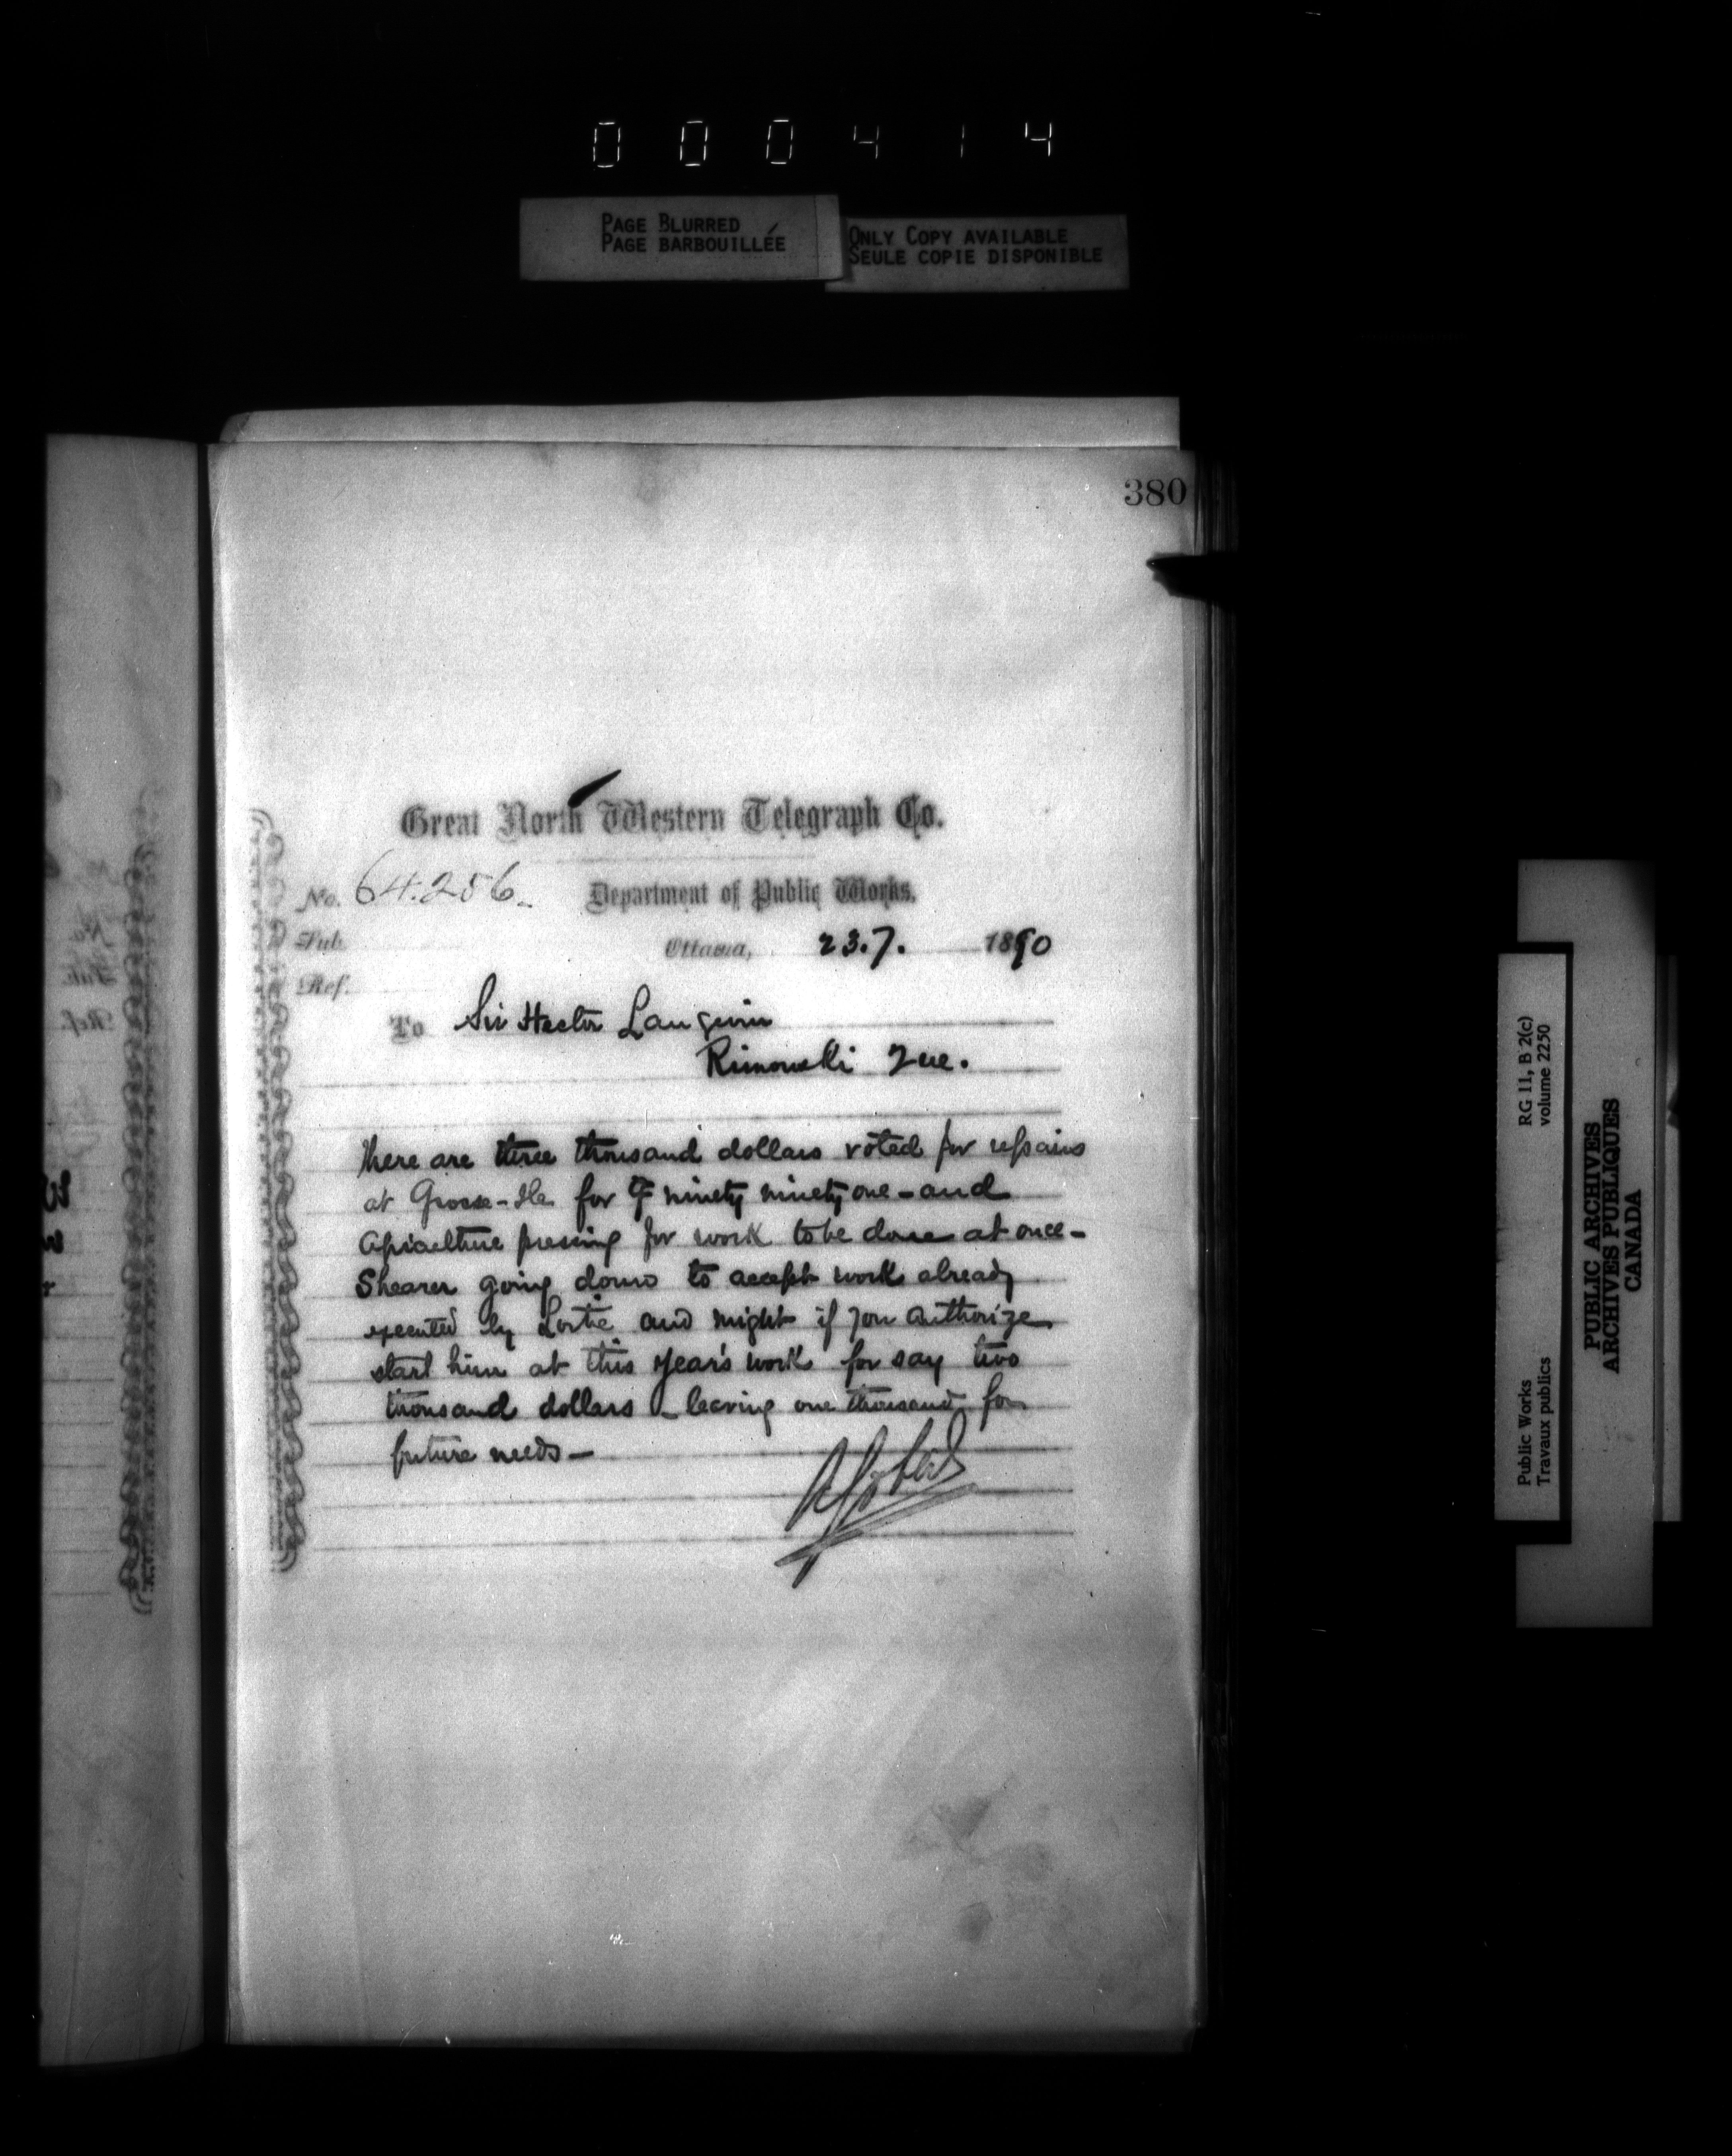 000414
PAGE BLURRED
PAGE BARBOUILLÉE
ONLY COPY AVAILABLE
SEULE COPIE DISPONIBLE
380
Great North Western Telegraph Co.
No. 64.256.
Department of Public Works.
Sub.
Ottawa, 23.7. 1890
Ref.
To Sir Hector Langevin
Rimouski Que.
There are three thousand dollars voted for repairs
at Grosse-Ile for ninety ninety one - and
Agriculture pressing for work to be done at once -
Shearer going down to accept work already
executed by Lortie and might if you authorize
start him at this year's work for say two
thousand dollars - leaving one thousand for
future needs -
RG 11, B 2(c)
volume 2250
Public Works
Travaux publics
PUBLIC ARCHIVES
ARCHIVES PUBLIQUES
CANADA